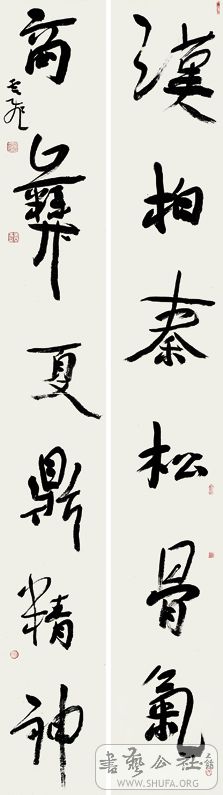 漢柏秦松骨氣
商彝夏鼎精神
書藝公社
WWW.SHUFA.ORG